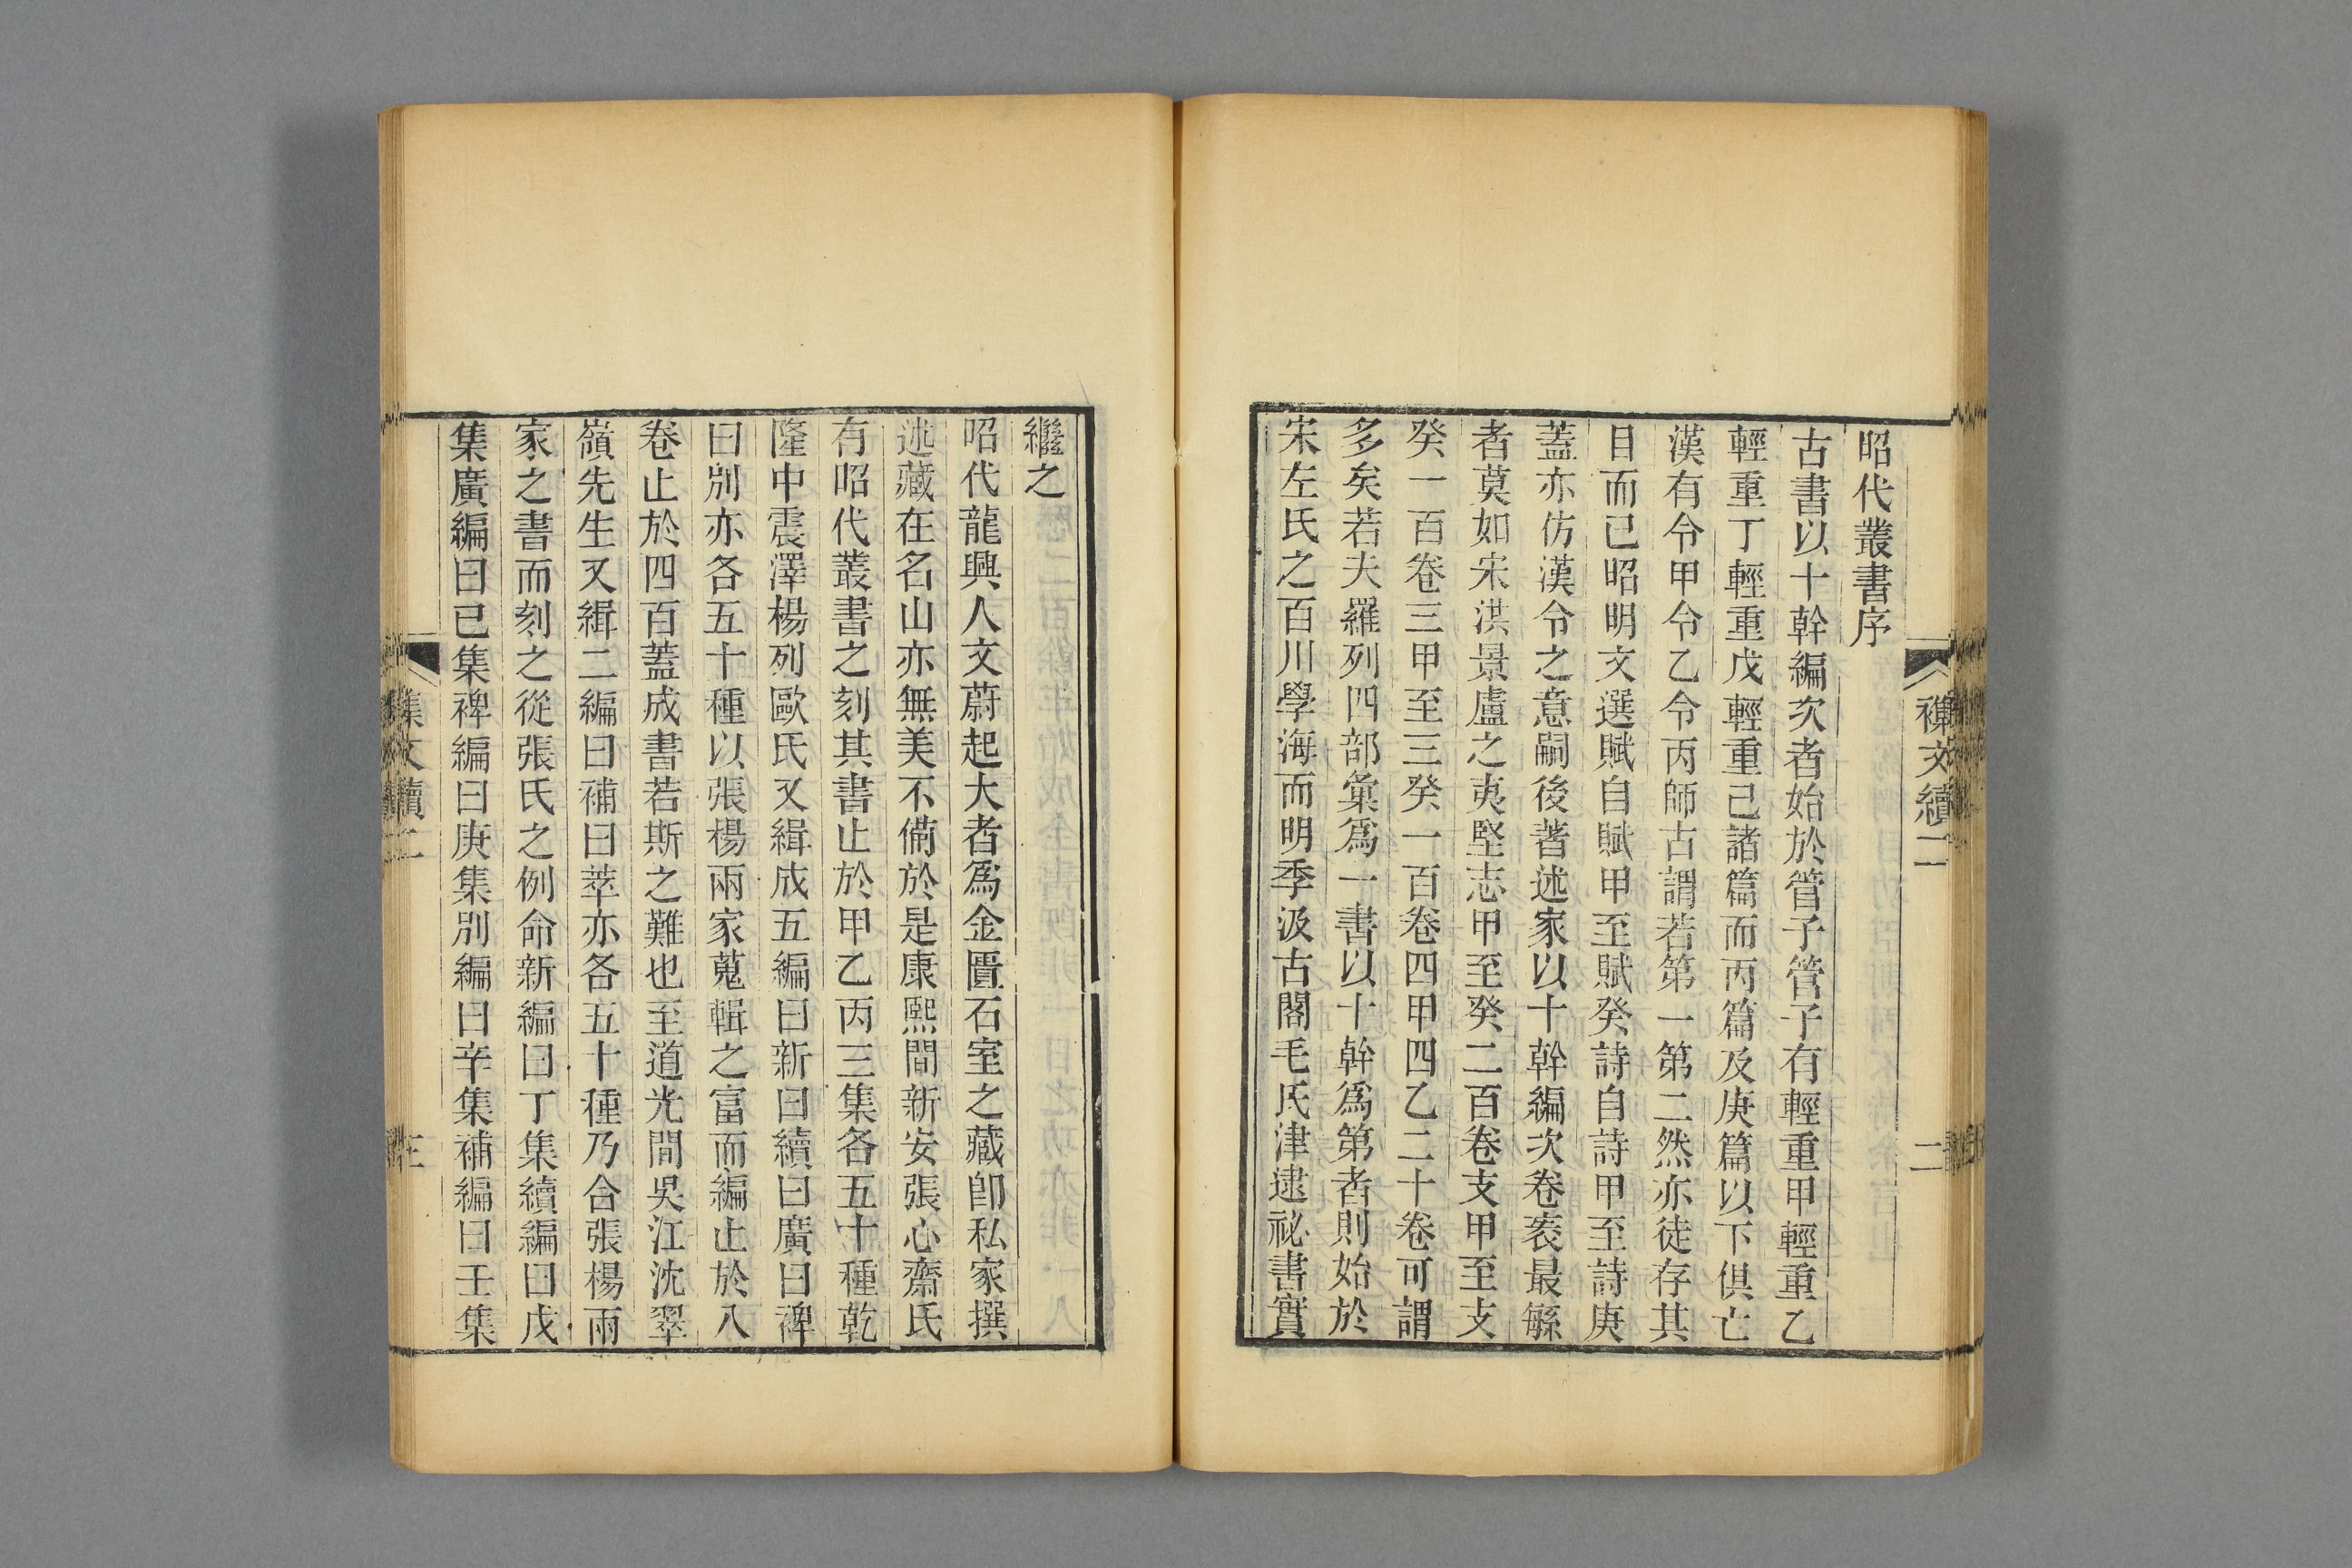 昭代叢書序
古書以十幹編次者始於管子管子有輕重甲輕重乙
輕重丁輕重戊輕重己諸篇而丙篇及庚篇以下俱亡
漢有令甲令乙令丙師古謂若第一第二然亦徒存其
目而已昭明文選賦自賦甲至賦癸詩自詩甲至詩庚
蓋亦仿漢令之意嗣後著述家以十幹編次卷袠最緐
者莫如宋洪景盧之夷堅志甲至癸二百卷支甲至支
癸一百卷三甲至三癸一百卷四甲四乙二十卷可謂
多矣若夫羅列四部彙爲一書以十幹爲第者則始於
宋左氏之百川學海而明季汲古閣毛氏津逮祕書實
繼之
昭代龍興人文蔚起大者爲金匱石室之藏卽私家撰
述藏在名山亦無美不備於是康熙間新安張心齋氏
有昭代叢書之刻其書止於甲乙丙三集各五十種乾
隆中震澤楊列歐氏又緝成五編曰新曰續曰廣曰裨
曰別亦各五十種以張楊兩家蒐輯之富而編止於八
卷止於四百蓋成書若斯之難也至道光間吳江沈翠
嶺先生又緝二編曰補曰萃亦各五十種乃合張楊兩
家之書而刻之從張氏之例命新編曰丁集續編曰戊
集廣編曰己集裨編曰庚集別編曰辛集補編曰壬集
襍文續二
二